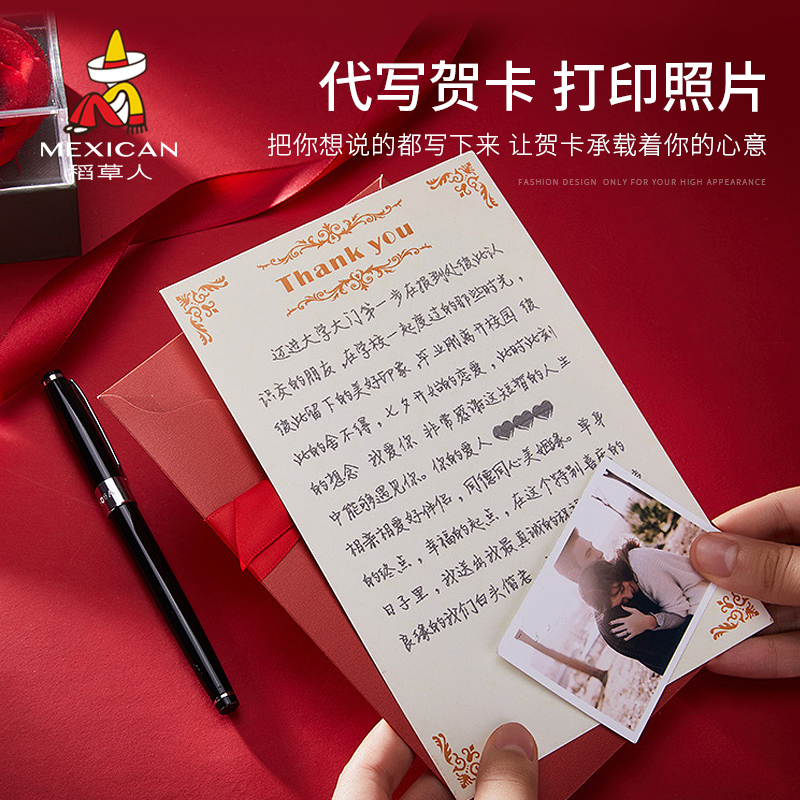 MEXICAN
稻草人
代写贺卡 打印照片
把你想说的都写下来 让贺卡承载着你的心意
FASHION DESIGN ONLY FOR YOUR HIGH APPEARANCE
Thank you
迈进大学大门第一步在报到处彼此认
识交的朋友，在学校一起度过的那些时光，
彼此留下的美好印象，毕业刚离开校园 彼
此的舍不得，七夕开始的恋爱，此时此刻
的想念 我爱你 非常感谢这短暂的人生
中能够遇见你。你的爱人
相亲相爱好伴侣，同德同心美姻缘。单身
的终点，幸福的起点，在这个特别喜庆的
日子里，我送出我最真诚的祝
良缘的我们白头偕老